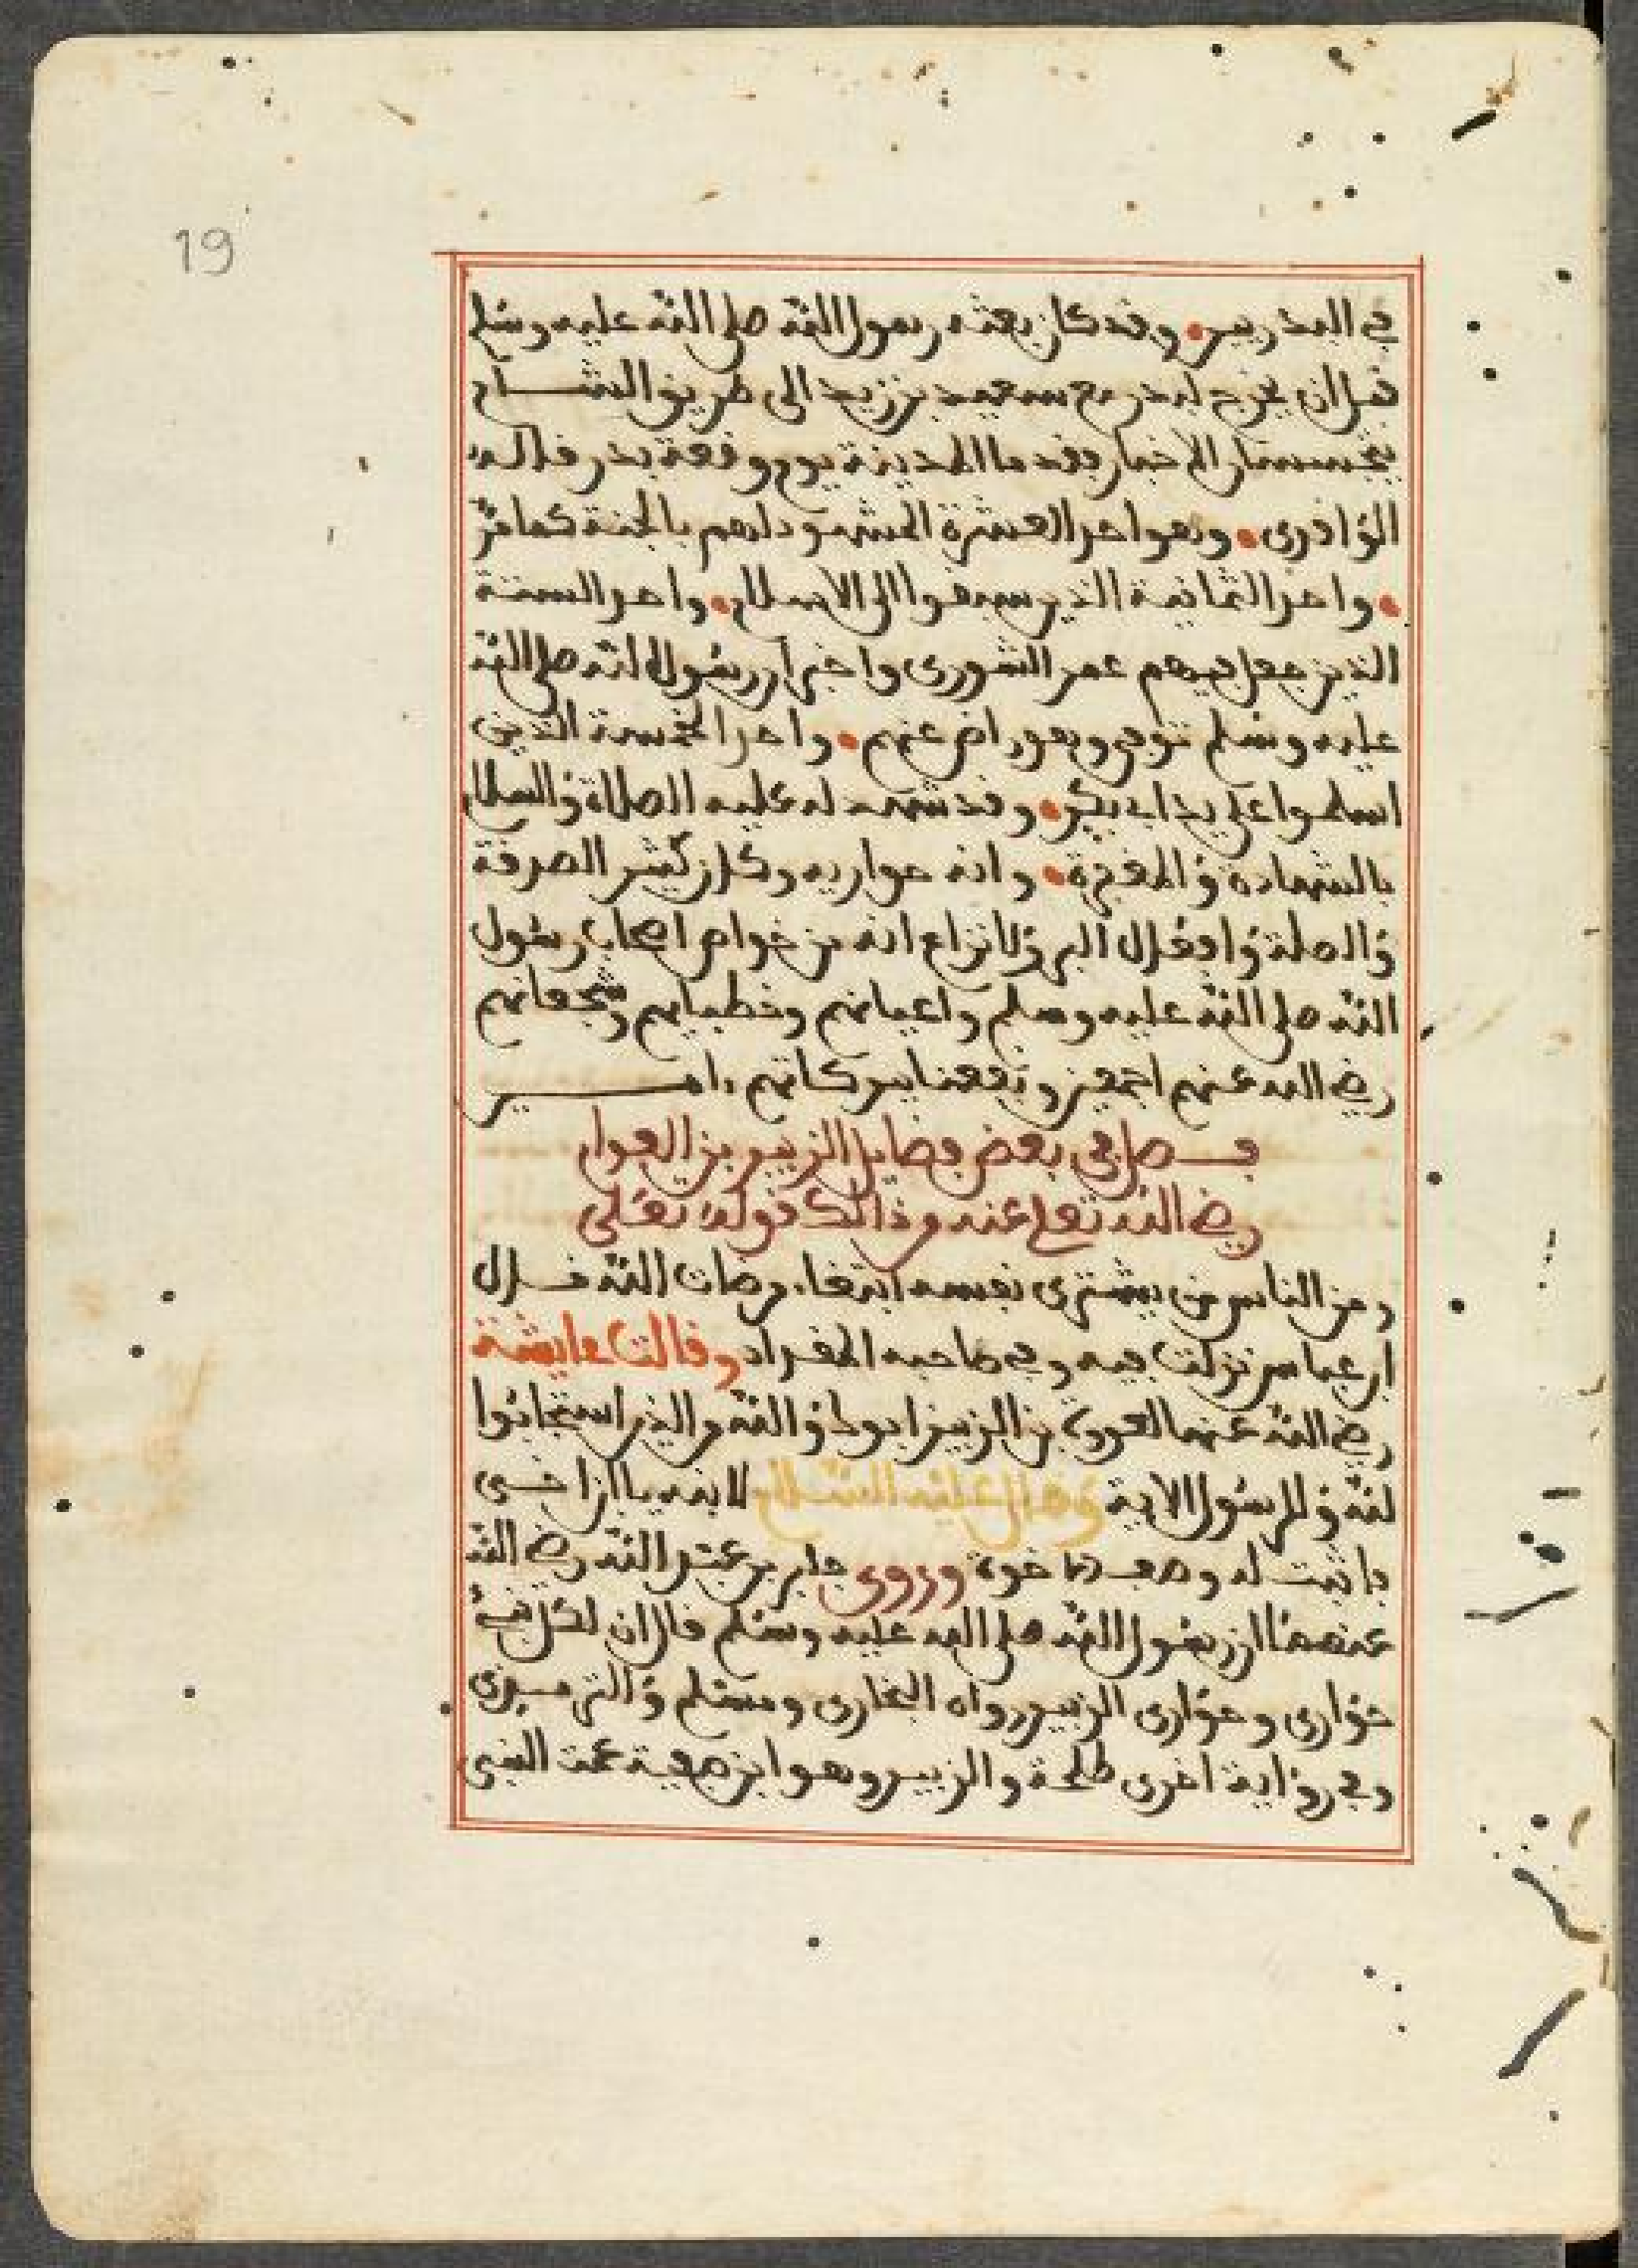 19
في البدريين وقد كان بعثه رسول الله صلى الله عليه وسلم
قبل ان يخرج لبدر مع سعيد بن زيد الى طريق الشام
يتجسسان الاخبار فقدما المدينة يوم وقعة بدر قاله
الواقدي وهو احد العشرة المشهود لهم بالجنة كما مر
واحد الثمانية الذين سبقوا الى الاسلام واحد الستة
الذين جعل فيهم عمر الشورى واخبر ان رسول الله صلى الله
عليه وسلم توفي وهو راض عنهم واحد الخمسة الذين
اسلموا على يد ابي بكر وقد شهد له عليه الصلاة والسلام
بالشهادة والمغفرة وانه حواريه وكان كثير الصدقة
والصلة وافعال البر ولا نزاع انه من خواص اصحاب رسول
الله صلى الله عليه وسلم واعيانهم وخطبايهم وشجعانهم
رضي الله عنهم اجمعين ونفعنا ببركاتهم ءامين
فصل في بعض فضايل الزبير بن العوام
رضي الله تعلى عنه وذالك قوله تعلى
ومن الناس من يشتري نفسه ابتغاء مرضات الله قال
ابن عباس نزلت فيه وفي صاحبه المقداد وقالت عايشة
رضي الله عنها لعروة بن الزبير ابوك والله من الذين استجابوا
لله وللرسول الاية وقال عليه السلام لابنه يا ابن اختي
روى جابر بن عبد الله رضي الله
عنهما ان رسول الله صلى الله عليه وسلم قال ان لكل نبي
حواري وحواري الزبير رواه البخاري ومسلم والترمذي
وفي رواية اخرى طلحة والزبير وهو ابن صفية عمة النبي